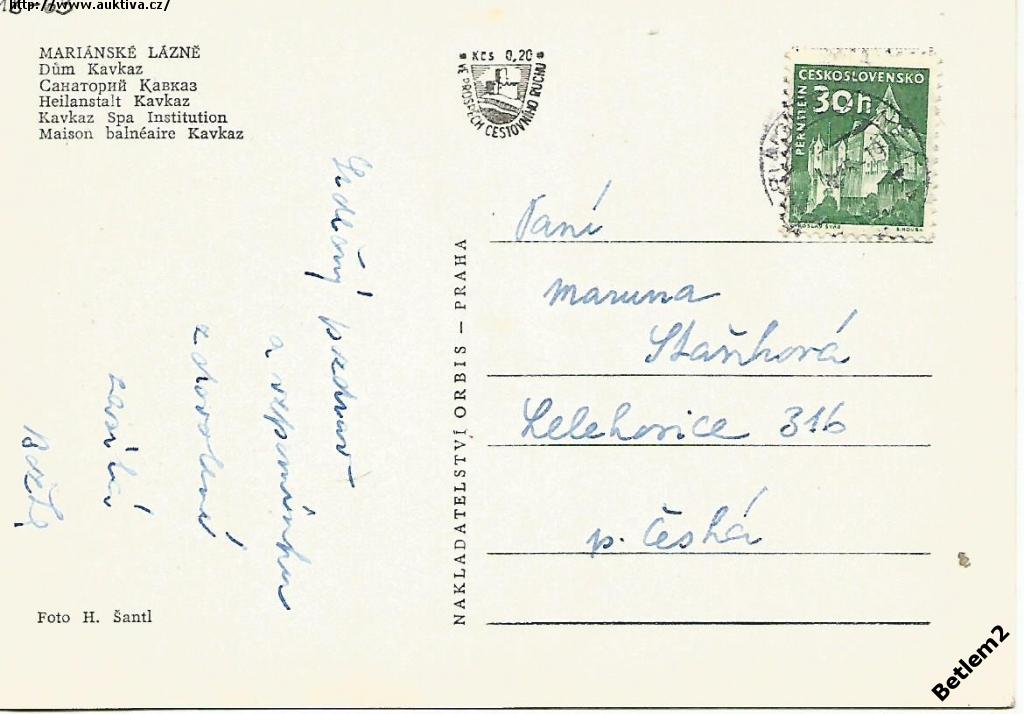 http://www.auktiva.cz/
MARIÁNSKÉ LÁZNĚ
Dům Kavkaz
Санаторий Кавказ
Heilanstalt Kavkaz
Kavkaz Spa Institution
Maison balnéaire Kavkaz
Kčs 0,20
VE PROSPĚCH CESTOVNÍHO RUCHU
ČESKOSLOVENSKO
30h
PERNŠTEJN
Srdečný pozdrav
a vzpomínku
z dovolené
zasílá
NAKLADATELSTVÍ ORBIS – PRAHA
Paní
Maruna
Staňková
Lelekovice 316
p. Česká
Foto H. Šantl
Betlem2